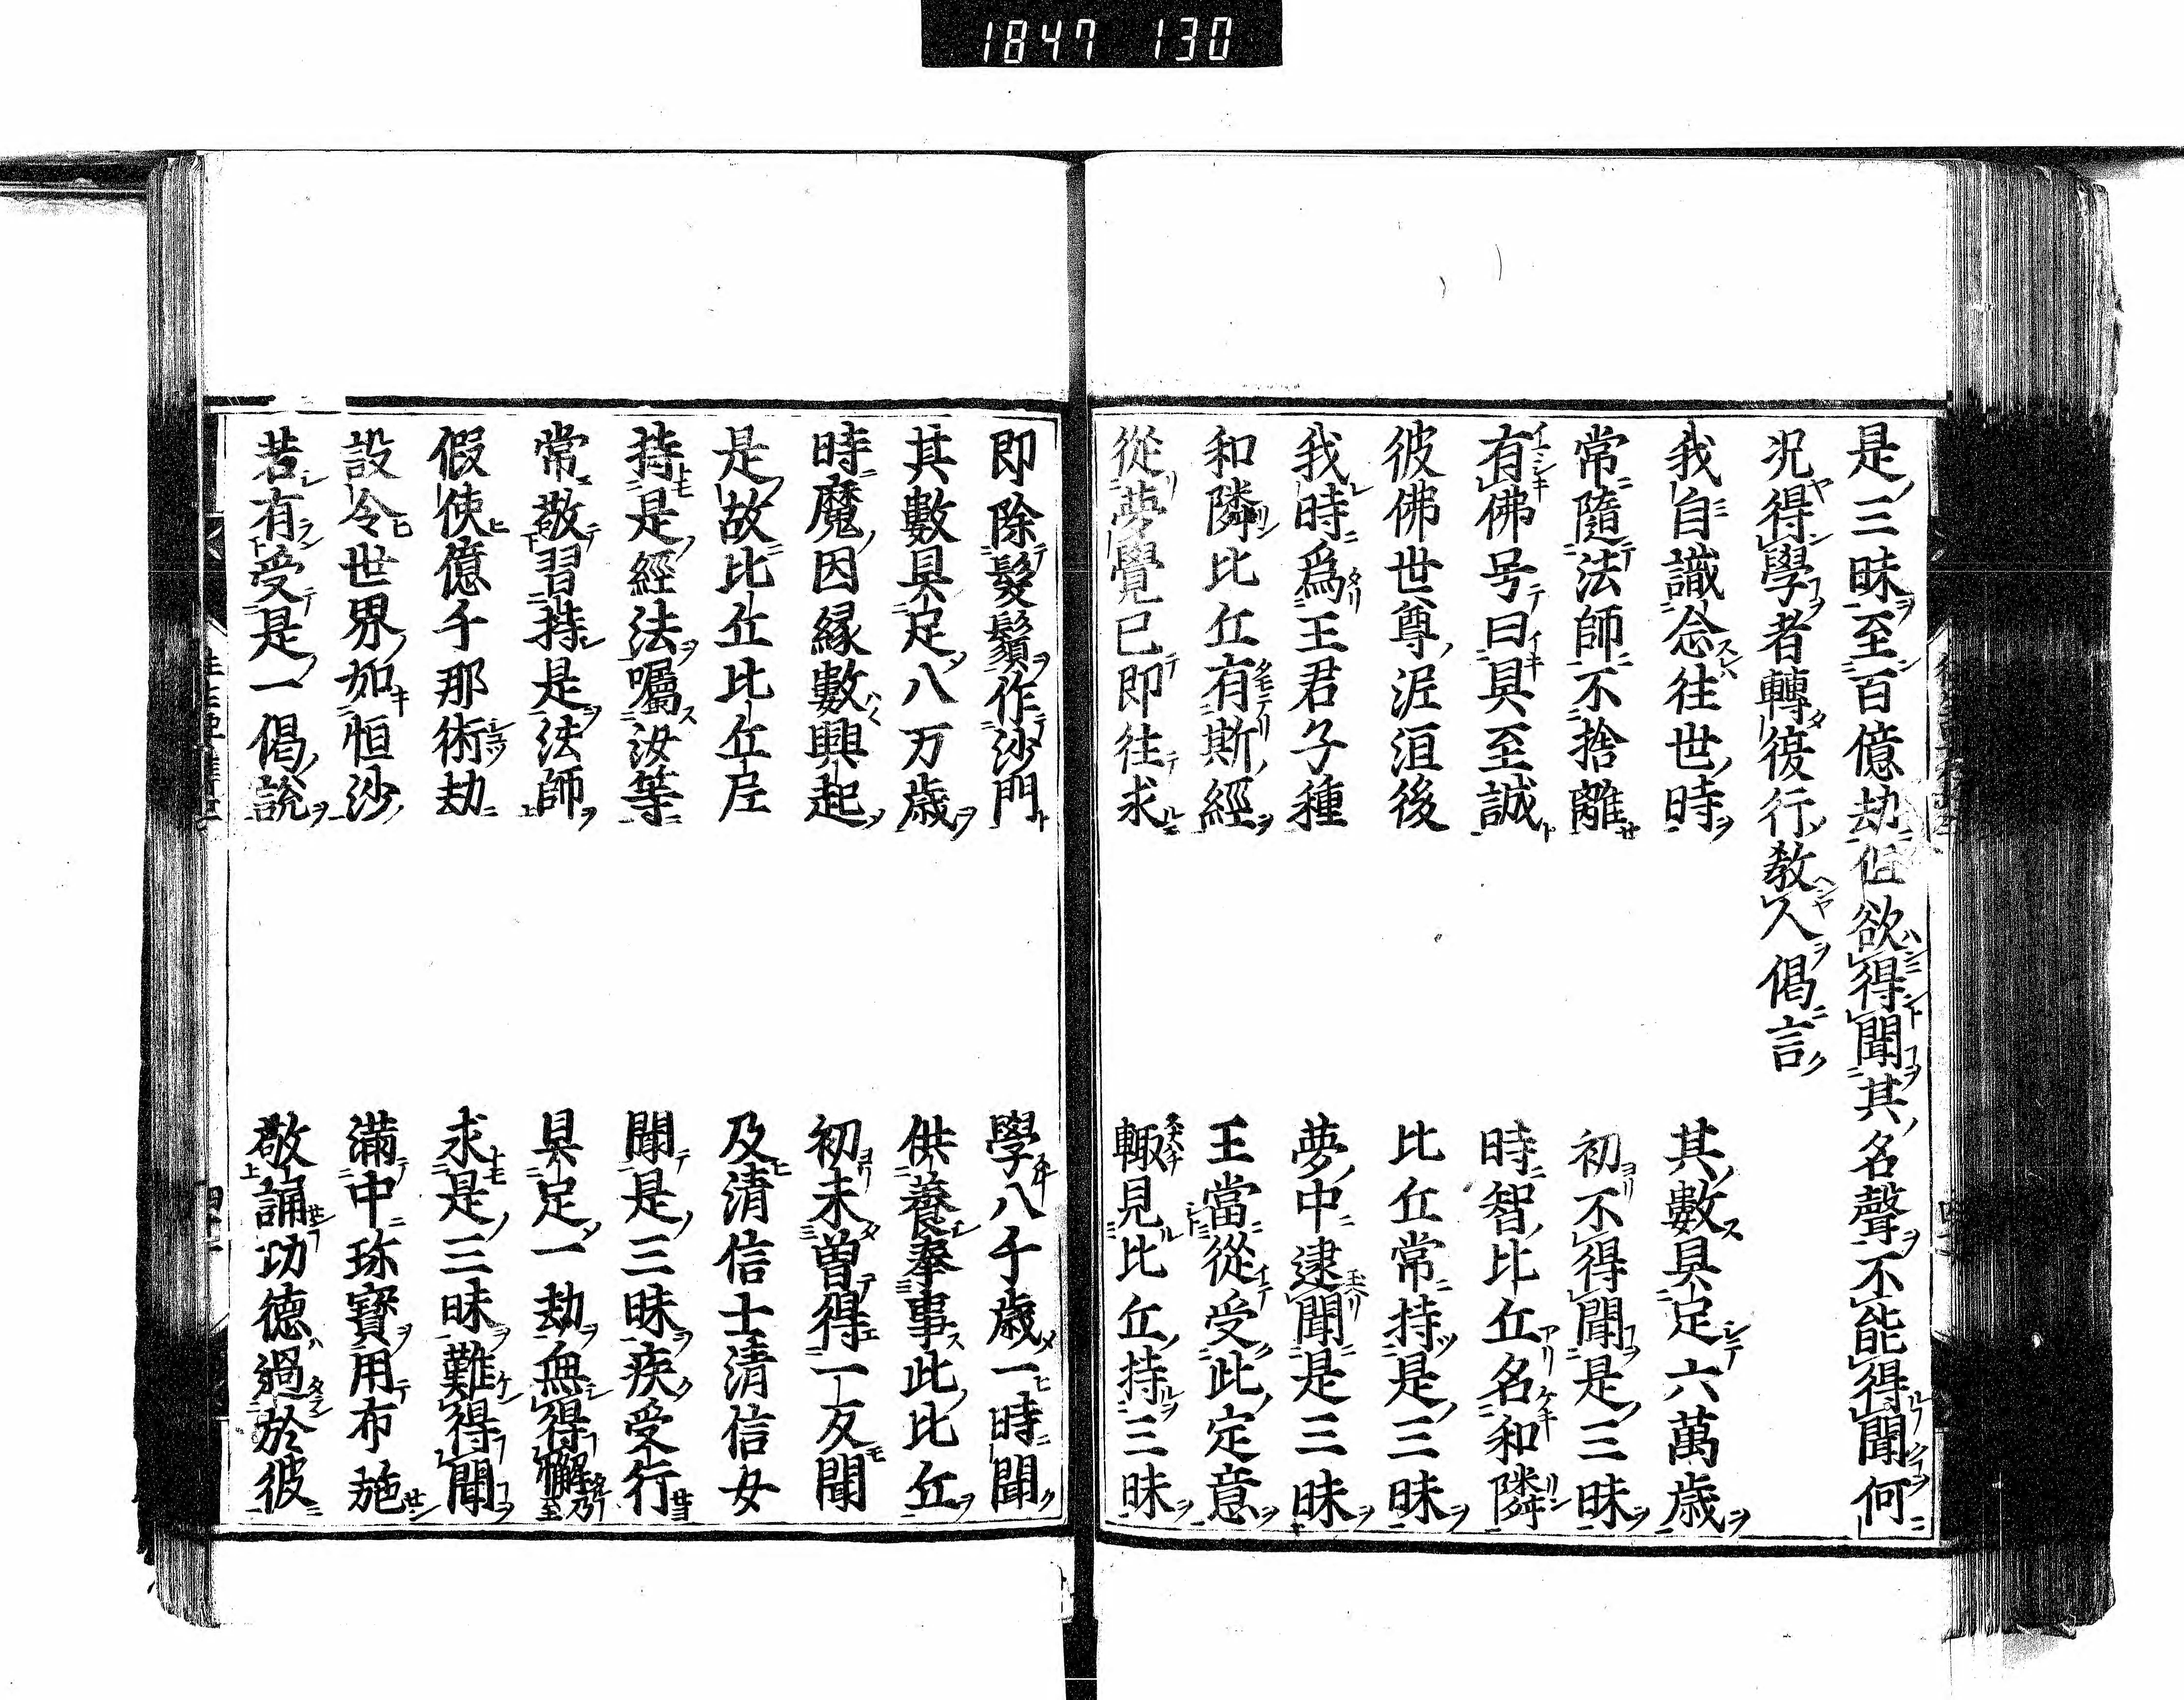 1847 130
是三昧至百億劫但欲得聞其名聲不能得聞何
況得學者轉復行教人偈言
我自識念往世時 其數具足六萬歲
常隨法師不捨離 初不得聞是三昧
有佛号曰具至誠 時智比丘名和隣
彼佛世尊泥洹後 比丘常持是三昧
我時爲王君子種 夢中逮聞是三昧
和隣比丘有斯經 王當從受此定意
從夢覺已即往求 輙見比丘持三昧
即除髮鬚作沙門 學八千歲一時聞
其數具足八万歲 供養奉事此比丘
時魔因縁數興起 初未曽得一反聞
是故比丘比丘尼 及清信士清信女
持是經法囑汝等 聞是三昧疾受行
常敬習持是法師 具足一劫無得懈
假使億千那術劫 求是三昧難得聞
設令世界如恒沙 滿中珎寶用布施
若有受是一偈說 敬誦功德過於彼